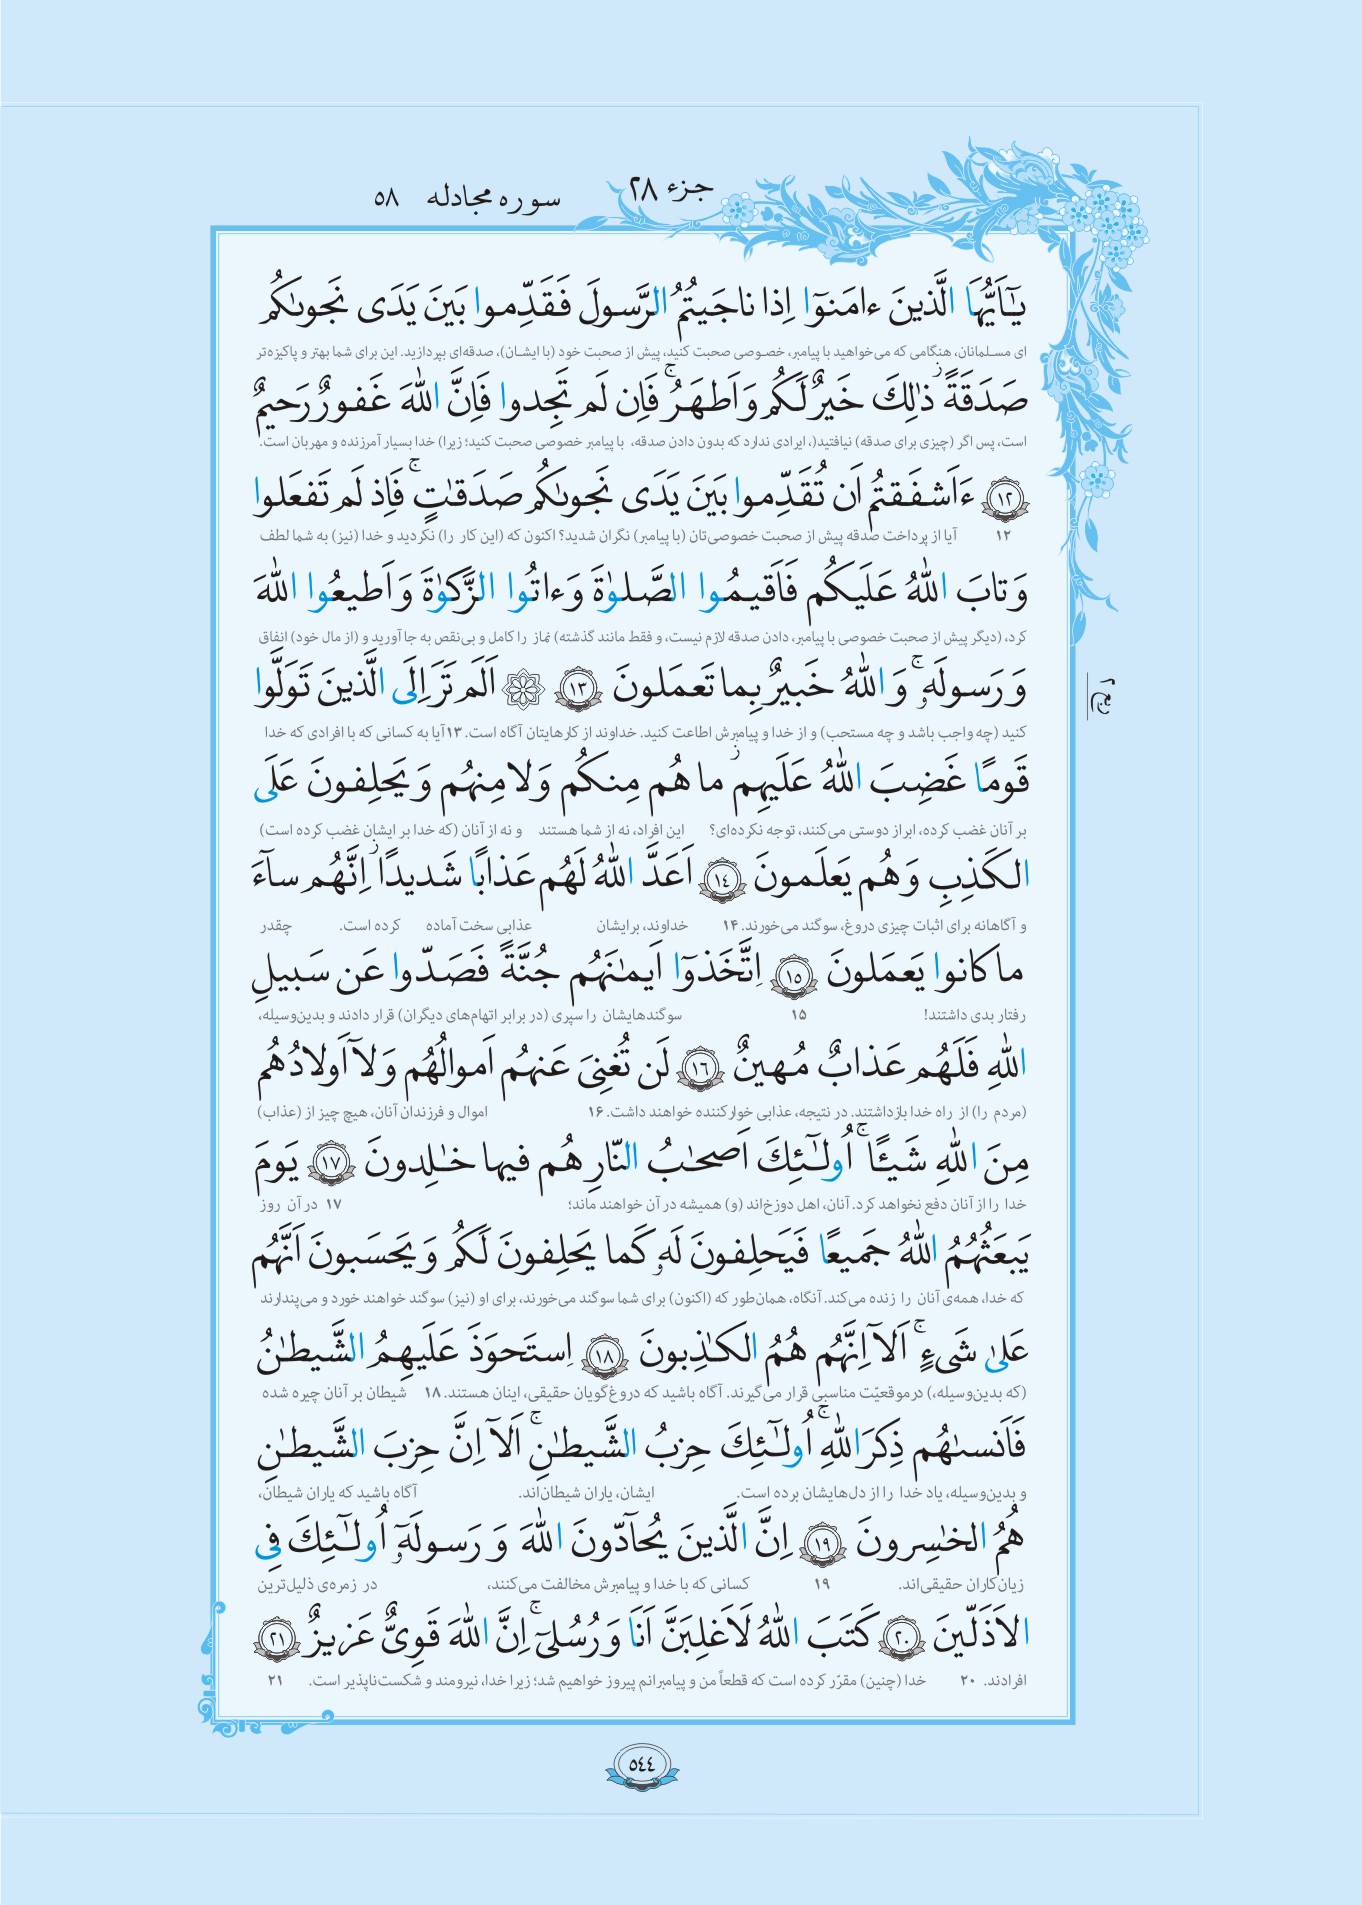 جزء ۲۸
سوره مجادله ۵۸
يٰٓاَيُّهَا الَّذينَ ءامَنوٓا اِذا ناجَيتُمُ الرَّسولَ فَقَدِّموا بَينَ يَدَى نَجوىٰكُم
ای مسلمانان، هنگامی که می‌خواهید با پیامبر، خصوصی صحبت کنید، پیش از صحبت خود (با ایشان)، صدقه‌ای بپردازید. این برای شما بهتر و پاکیزه‌تر
صَدَقَةً ۚ ذٰلِكَ خَيرٌ لَكُم وَ اَطهَرُ ۚ فَاِن لَم تَجِدوا فَاِنَّ اللّٰهَ غَفورٌ رَحيمٌ
است، پس اگر (چیزی برای صدقه) نیافتید(، ایرادی ندارد که بدون دادن صدقه، با پیامبر خصوصی صحبت کنید؛ زیرا) خدا بسیار آمرزنده و مهربان است.
۱۲ ءَاَشفَقتُم اَن تُقَدِّموا بَينَ يَدَى نَجوىٰكُم صَدَقٰتٍ ۚ فَاِذ لَم تَفعَلوا
۱۲ آیا از پرداخت صدقه پیش از صحبت خصوصی‌تان (با پیامبر) نگران شدید؟ اکنون که (این کار را) نکردید و خدا (نیز) به شما لطف
وَ تابَ اللّٰهُ عَلَيكُم فَاَقيمُوا الصَّلوٰةَ وَ ءاتُوا الزَّكوٰةَ وَ اَطيعُوا اللّٰهَ
کرد، (دیگر پیش از صحبت خصوصی با پیامبر، دادن صدقه لازم نیست، و فقط مانند گذشته) نماز را کامل و بی‌نقص به جا آورید و (از مال خود) انفاق
وَ رَسولَهٗ ۚ وَ اللّٰهُ خَبيرٌ بِما تَعمَلونَ ۱۳ اَلَم تَرَ اِلَى الَّذينَ تَوَلَّوا
کنید (چه واجب باشد و چه مستحب) و از خدا و پیامبرش اطاعت کنید. خداوند از کارهایتان آگاه است. ۱۳ آیا به کسانی که با افرادی که خدا
قَومًا غَضِبَ اللّٰهُ عَلَيهِم ما هُم مِنكُم وَ لا مِنهُم وَ يَحلِفونَ عَلَى
بر آنان غضب کرده، ابراز دوستی می‌کنند، توجه نکرده‌ای؟ این افراد، نه از شما هستند و نه از آنان (که خدا بر ایشان غضب کرده است)
الكَذِبِ وَ هُم يَعلَمونَ ۱۴ اَعَدَّ اللّٰهُ لَهُم عَذابًا شَديدًا اِنَّهُم سآءَ
و آگاهانه برای اثبات چیزی دروغ، سوگند می‌خورند. ۱۴ خداوند، برایشان عذابی سخت آماده کرده است. چقدر
ما كانوا يَعمَلونَ ۱۵ اِتَّخَذوٓا اَيمٰنَهُم جُنَّةً فَصَدّوا عَن سَبيلِ
رفتار بدی داشتند! ۱۵ سوگندهایشان را سپری (در برابر اتهام‌های دیگران) قرار دادند و بدین‌وسیله،
اللّٰهِ فَلَهُم عَذابٌ مُهينٌ ۱۶ لَن تُغنِىَ عَنهُم اَموالُهُم وَ لآ اَولادُهُم
(مردم را) از راه خدا بازداشتند. در نتیجه، عذابی خوارکننده خواهند داشت. ۱۶ اموال و فرزندان آنان، هیچ چیز از (عذاب)
مِنَ اللّٰهِ شَيـًٔا ۚ اُولٰٓئِكَ اَصحٰبُ النّارِ هُم فيها خٰلِدونَ ۱۷ يَومَ
خدا را از آنان دفع نخواهد کرد. آنان، اهل دوزخ‌اند (و) همیشه در آن خواهند ماند؛ ۱۷ در آن روز
يَبعَثُهُمُ اللّٰهُ جَميعًا فَيَحلِفونَ لَهٗ كَما يَحلِفونَ لَكُم وَ يَحسَبونَ اَنَّهُم
که خدا، همه‌ی آنان را زنده می‌کند. آنگاه، همان‌طور که (اکنون) برای شما سوگند می‌خورند، برای او (نیز) سوگند خواهند خورد و می‌پندارند
عَلىٰ شَىءٍ ۚ اَلآ اِنَّهُم هُمُ الكٰذِبونَ ۱۸ اِستَحوَذَ عَلَيهِمُ الشَّيطٰنُ
(که بدین‌وسیله،) در موقعیّت مناسبی قرار می‌گیرند. آگاه باشید که دروغ‌گویان حقیقی، اینان هستند. ۱۸ شیطان بر آنان چیره شده
فَاَنسىٰهُم ذِكرَ اللّٰهِ ۚ اُولٰٓئِكَ حِزبُ الشَّيطٰنِ ۚ اَلآ اِنَّ حِزبَ الشَّيطٰنِ
و بدین‌وسیله، یاد خدا را از دل‌هایشان برده است. ایشان، یاران شیطان‌اند. آگاه باشید که یاران شیطان،
هُمُ الخٰسِرونَ ۱۹ اِنَّ الَّذينَ يُحآدّونَ اللّٰهَ وَ رَسولَهٗٓ اُولٰٓئِكَ فِى
زیان‌کاران حقیقی‌اند. ۱۹ کسانی که با خدا و پیامبرش مخالفت می‌کنند، در زمره‌ی ذلیل‌ترین
الاَذَلّينَ ۲۰ كَتَبَ اللّٰهُ لَاَغلِبَنَّ اَنَا وَ رُسُلىٓ ۚ اِنَّ اللّٰهَ قَوِىٌّ عَزيزٌ ۲۱
افرادند. ۲۰ خدا (چنین) مقرّر کرده است که قطعاً من و پیامبرانم پیروز خواهیم شد؛ زیرا خدا، نیرومند و شکست‌ناپذیر است. ۲۱
۵۴۴